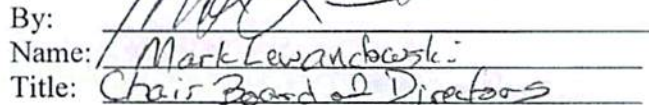 By:
Name: Mark Lewandowski
Title: Chair Board of Directors